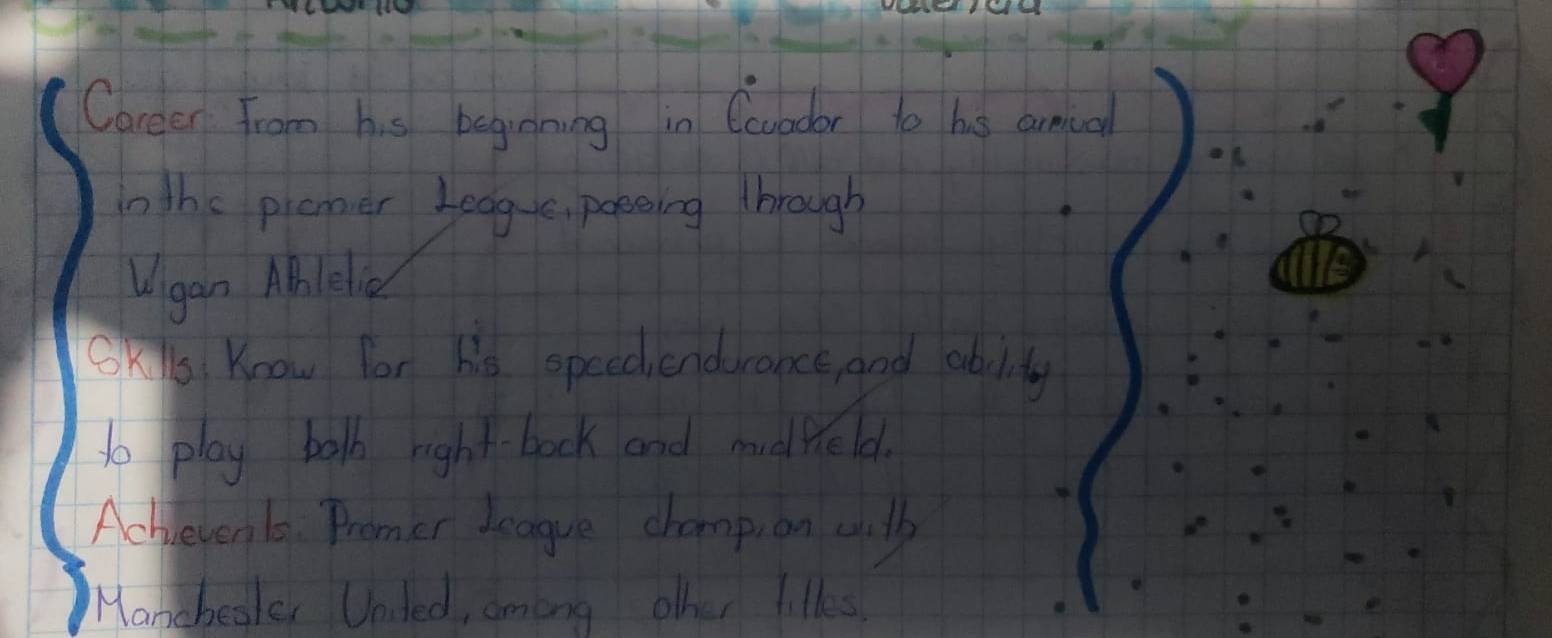 Antonio Valencia
Career: From his beginning in Ecuador to his arrival
in the premier League, passing through
Wigan Athletic
Skills: Know for his speed, endurance, and ability
to play both right-back and midfield.
Achievents. Premier League champion with
Manchester United, among other titles.